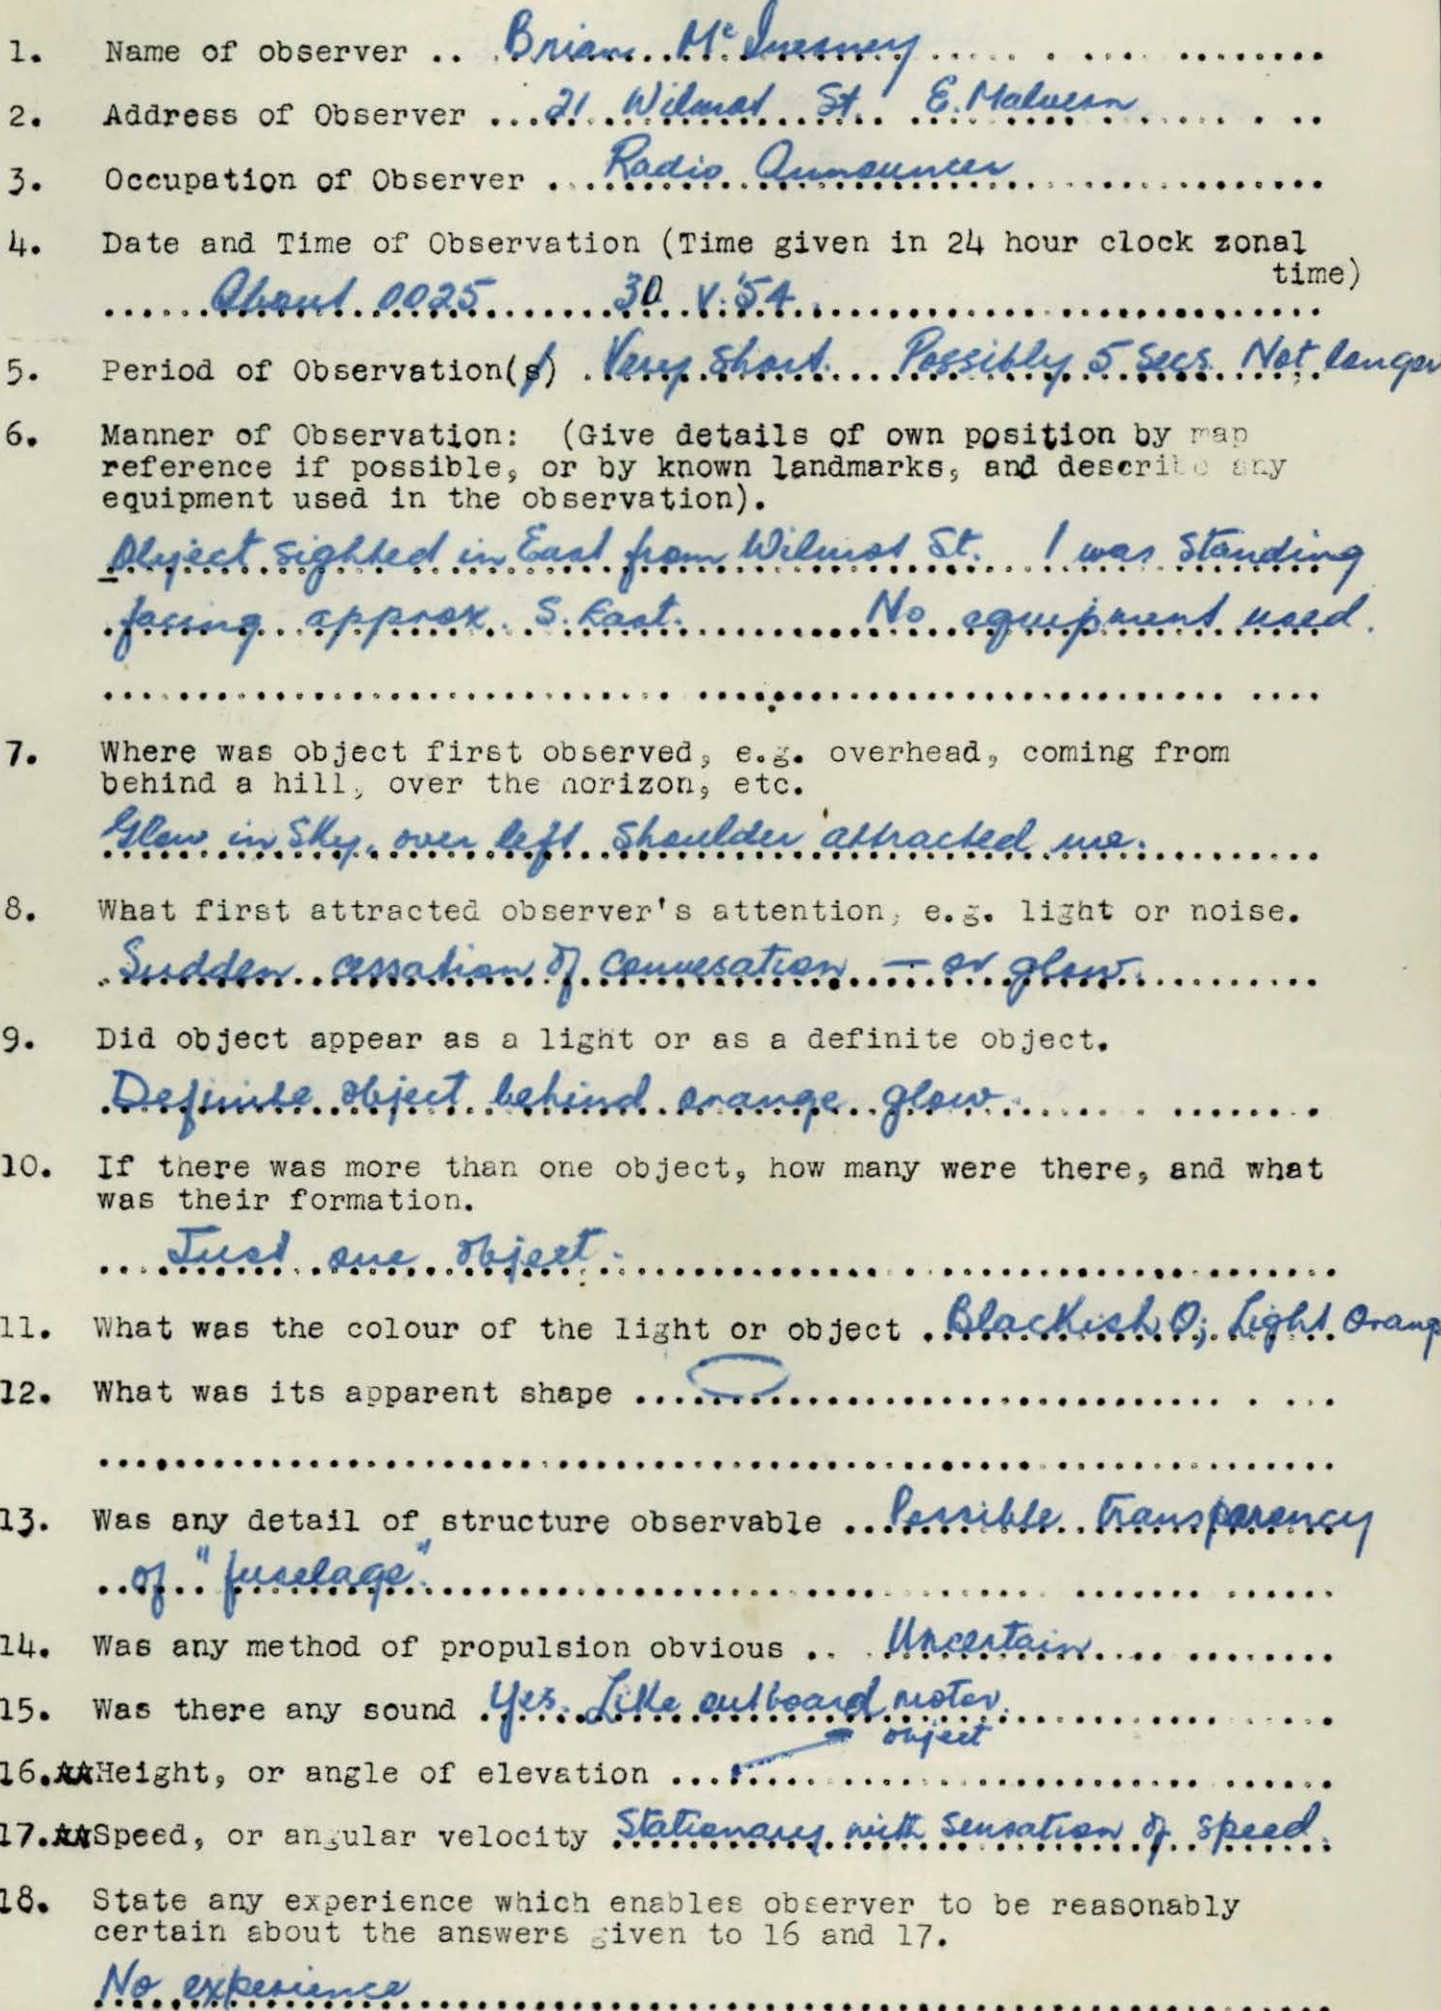 1. Name of observer .. Brian Mc
2. Address of Observer ... 21 Wilmot St. E. Malvern
3. Occupation of Observer ... Radio Announcer
4. Date and Time of Observation (Time given in 24 hour clock zonal
time)
About 0025 30 V. '54.
5. Period of Observation(s) . Very Short. Possibly 5 Secs. Not longer
6. Manner of Observation: (Give details of own position by map
reference if possible, or by known landmarks, and describe any
equipment used in the observation).
Object sighted in East from Wilmot St. I was standing
facing approx. S. East. No equipment used.
7. Where was object first observed, e.g. overhead, coming from
behind a hill, over the horizon, etc.
Glow in Sky, over left shoulder attracted me.
8. What first attracted observer's attention, e.g. light or noise.
Sudden cessation of convesation — or glow.
9. Did object appear as a light or as a definite object.
Definite object behind orange glow.
10. If there was more than one object, how many were there, and what
was their formation.
Just one object.
11. What was the colour of the light or object . Blackish O; Light Orang
12. What was its apparent shape ...
13. Was any detail of structure observable ... Possible transparency
of "fuselage".
14. Was any method of propulsion obvious .. Uncertain
15. Was there any sound . Yes. Like outboard motor.
object
16.**Height, or angle of elevation ...
17.**Speed, or angular velocity Stationary with sensation of speed.
18. State any experience which enables observer to be reasonably
certain about the answers given to 16 and 17.
No experience